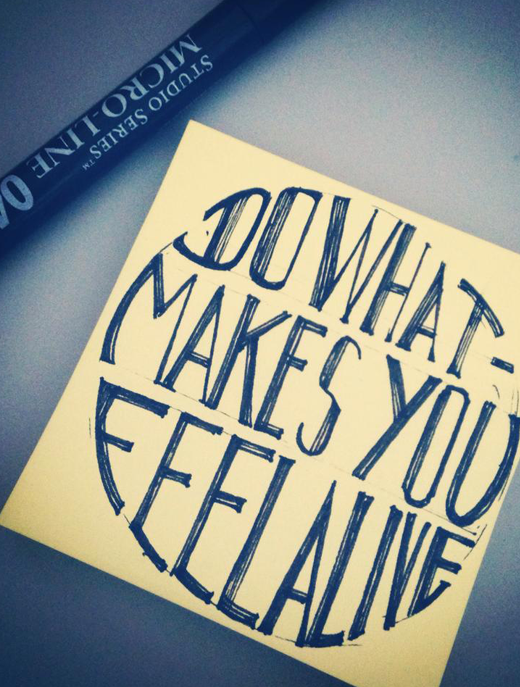 STUDIO SERIES™
MICRO-LINE
DO WHAT-
MAKES YOU
FEEL ALIVE